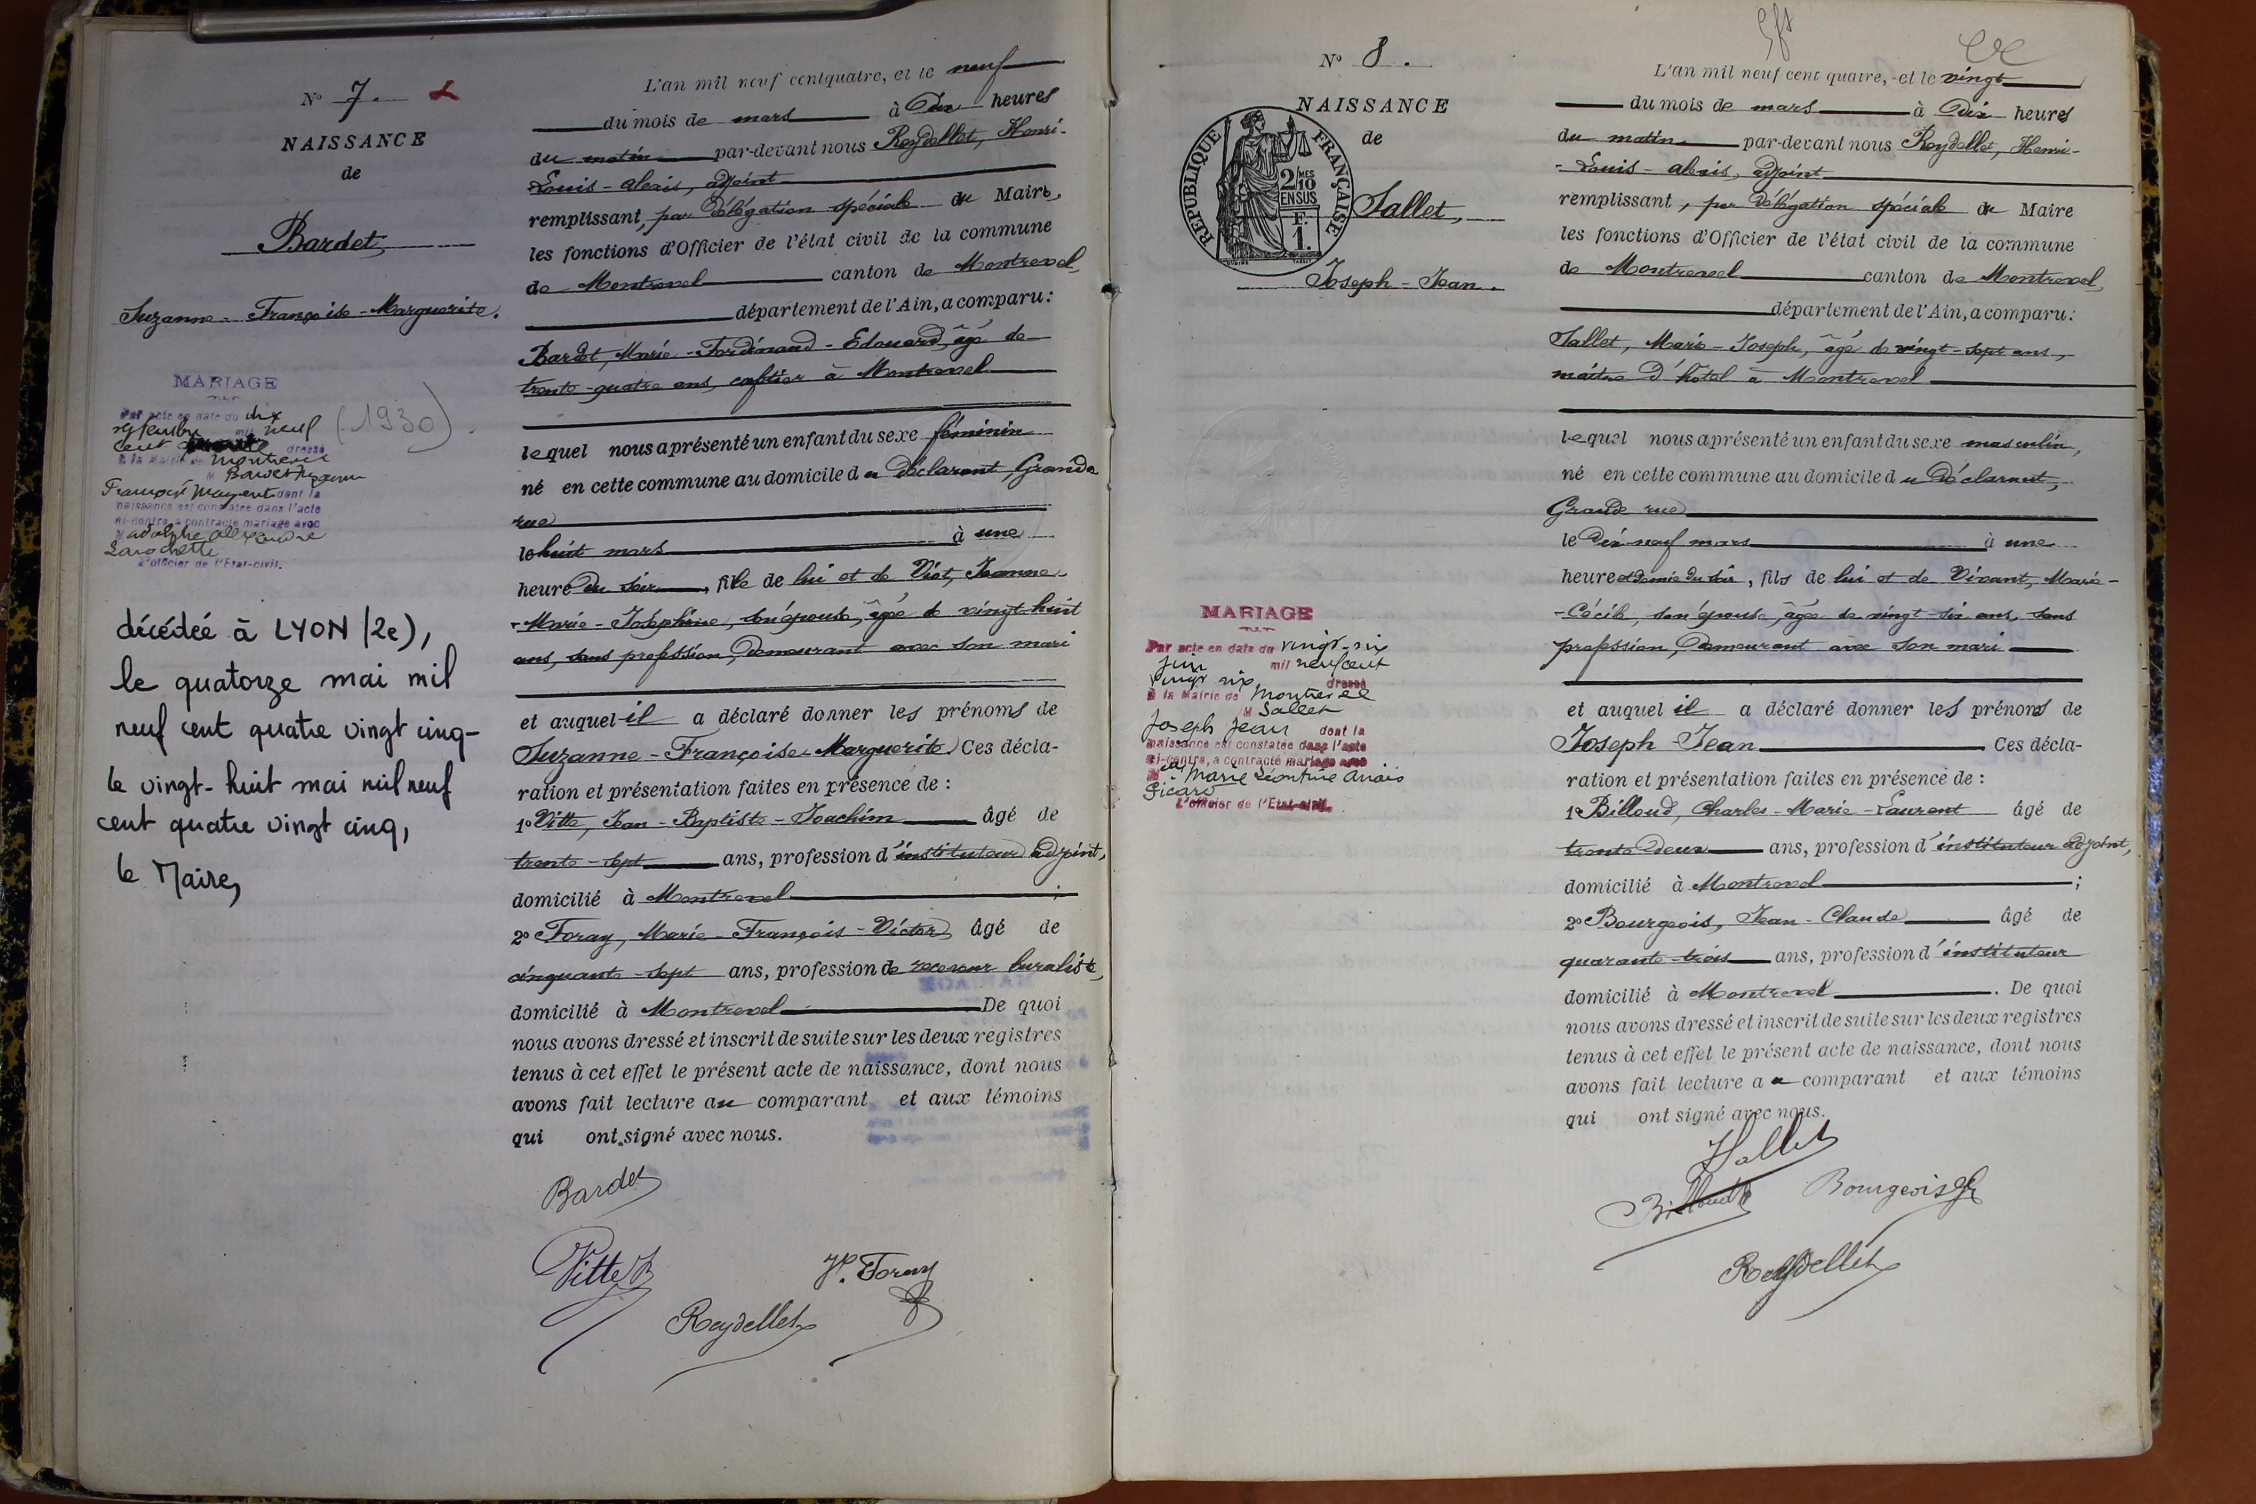 N° 7.
NAISSANCE
de
Bardet,
Suzanne - Françoise - Marguerite.
MARIAGE
Par acte en date du dix
septembre mil neuf (1930)
cent dressé
à la Mairie de Montrevel
M Bardet Suzanne
Françoise Marguerite dont la
naissance est constatée dans l'acte
ci-contre, a contracté mariage avec
M Adolphe Alexandre
Larochette
L'officier de l'Etat-civil.
décédée à LYON (2e),
le quatorze mai mil
neuf cent quatre vingt cinq-
le vingt-huit mai mil neuf
cent quatre vingt cinq,
le Maire,
L'an mil neuf cent quatre, et le neuf
du mois de mars à Dix heures
du matin par-devant nous Reydellet, Henri-
Louis - Alexis, adjoint
remplissant, par délégation spéciale du Maire,
les fonctions d'Officier de l'état civil de la commune
de Montrevel canton de Montrevel,
département de l'Ain, a comparu:
Bardet, Marie - Ferdinand - Edouard, âgé de
trente-quatre ans, cafetier à Montrevel
lequel nous a présenté un enfant du sexe féminin
né en cette commune au domicile du Déclarant, Grande
rue
le huit mars à une
heure du soir, fille de lui et de Viot, Jeanne
- Marie - Joséphine, son épouse, âgée de vingt-huit
ans, sans profession, demeurant avec son mari
et auquel il a déclaré donner les prénoms de
Suzanne - Françoise - Marguerite Ces décla-
ration et présentation faites en présence de :
1° Vitte, Jean - Baptiste - Joachim âgé de
trente - sept ans, profession d'instituteur adjoint,
domicilié à Montrevel ;
2° Foray, Marie - François - Victor, âgé de
cinquante - sept ans, profession de receveur buraliste,
domicilié à Montrevel De quoi
nous avons dressé et inscrit de suite sur les deux registres
tenus à cet effet le présent acte de naissance, dont nous
avons fait lecture au comparant et aux témoins
qui ont signé avec nous.
Bardet
Vitte JB
V. Foray
Reydellet
N° 8.
NAISSANCE
de
RÉPUBLIQUE FRANÇAISE
2/10 MES
EN SUS
F.
1.
Sallet,
Joseph - Jean.
MARIAGE
Par acte en date du vingt-six
juin mil neuf cent
vingt six dressé
à la Mairie de Montrevel
M Sallet
Joseph Jean dont la
naissance est constatée dans l'acte
ci-contre, a contracté mariage avec
M elle Marie Léontine Anaïs
Picard
L'officier de l'Etat-civil.
L'an mil neuf cent quatre, et le vingt
du mois de mars à Dix heures
du matin par-devant nous Reydellet, Henri-
- Louis - Alexis, adjoint
remplissant, par délégation spéciale du Maire
les fonctions d'Officier de l'état civil de la commune
de Montrevel canton de Montrevel,
département de l'Ain, a comparu:
Sallet, Marie - Joseph, âgé de vingt-sept ans,
maître d'hôtel à Montrevel
lequel nous a présenté un enfant du sexe masculin,
né en cette commune au domicile du Déclarant,
Grande rue
le Dix-neuf mars à une
heure et demie du soir, fils de lui et de Vivant, Marie -
- Cécile, son épouse, âgée de vingt-six ans, sans
profession, demeurant avec son mari
et auquel il a déclaré donner les prénoms de
Joseph - Jean Ces décla-
ration et présentation faites en présence de :
1° Billoud, Charles - Marie - Laurent âgé de
trente deux ans, profession d'instituteur adjoint,
domicilié à Montrevel ;
2° Bourgeois, Jean - Claude âgé de
quarante-trois ans, profession d'instituteur
domicilié à Montrevel . De quoi
nous avons dressé et inscrit de suite sur les deux registres
tenus à cet effet le présent acte de naissance, dont nous
avons fait lecture au comparant et aux témoins
qui ont signé avec nous.
Sallet
Billoud
Bourgeois
Reydellet